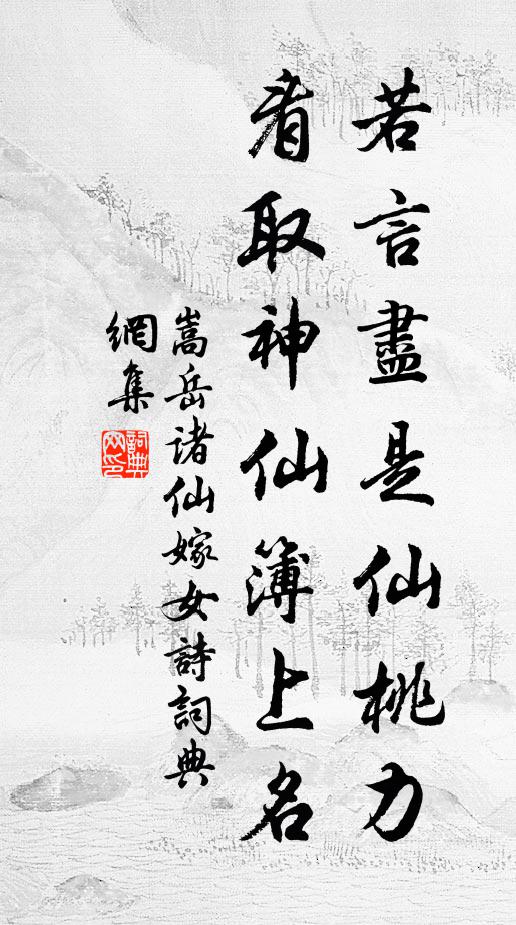 若言盡是仙桃力
看取神仙簿上名
嵩岳諸仙嫁女詩詞典
網集
詞典網印